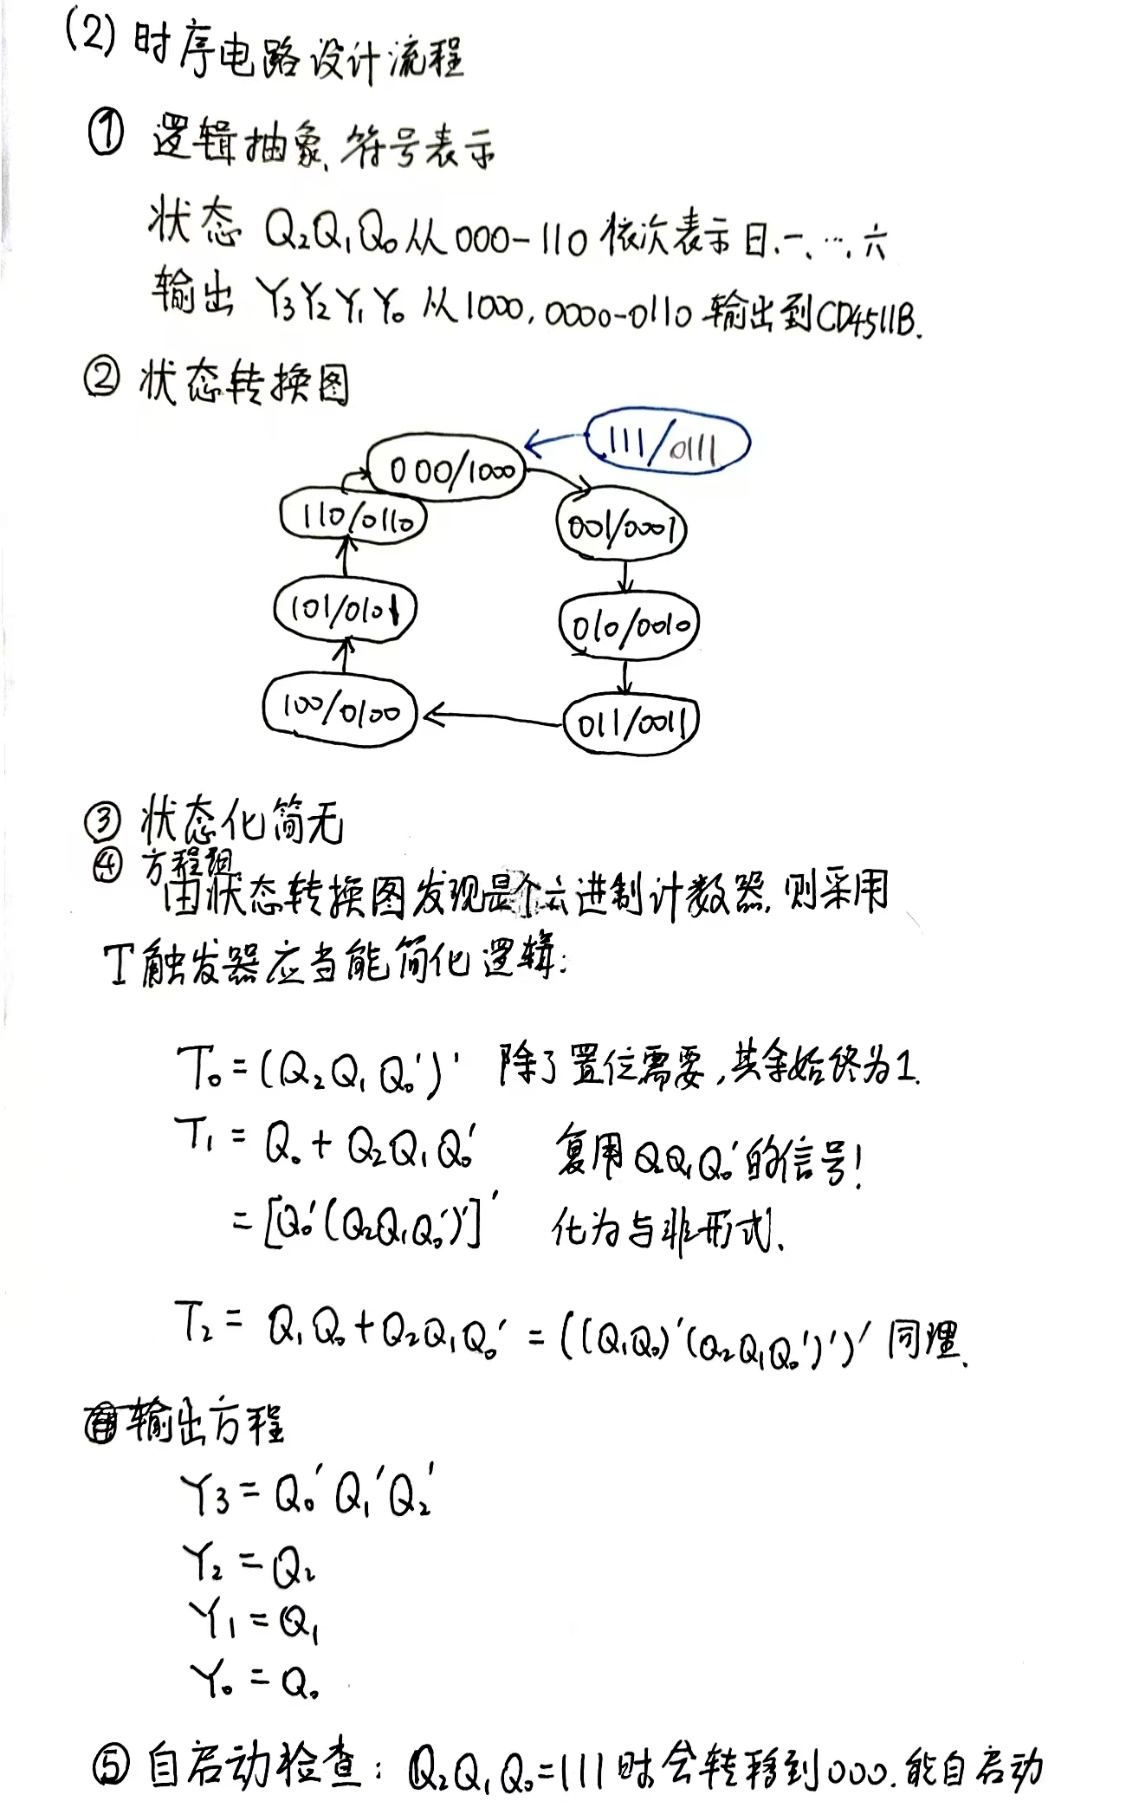 (2) 时序电路设计流程
① 逻辑抽象、符号表示
状态 Q₂Q₁Q₀从000-110依次表示日、一、…、六
输出 Y₃Y₂Y₁Y₀ 从1000,0000-0110 输出到CD4511B.
② 状态转换图
111/0111
000/1000
110/0110
001/0001
101/0101
010/0010
100/0100
011/0011
③ 状态化简无
④ 方程组
由状态转换图发现是个六进制计数器,则采用
T触发器应当能简化逻辑:
T₀=(Q₂Q₁Q₀')' 除了置位需要,其余始终为1.
T₁=Q₀+Q₂Q₁Q₀' 复用Q₂Q₁Q₀'的信号!
=[Q₀'(Q₂Q₁Q₀')']' 化为与非形式、
T₂=Q₁Q₀+Q₂Q₁Q₀'=((Q₁Q₀)'(Q₂Q₁Q₀')')' 同理、
输出方程
Y₃=Q₀'Q₁'Q₂'
Y₂=Q₂
Y₁=Q₁
Y₀=Q₀
⑤ 自启动检查:Q₂Q₁Q₀=111时会转移到000.能自启动